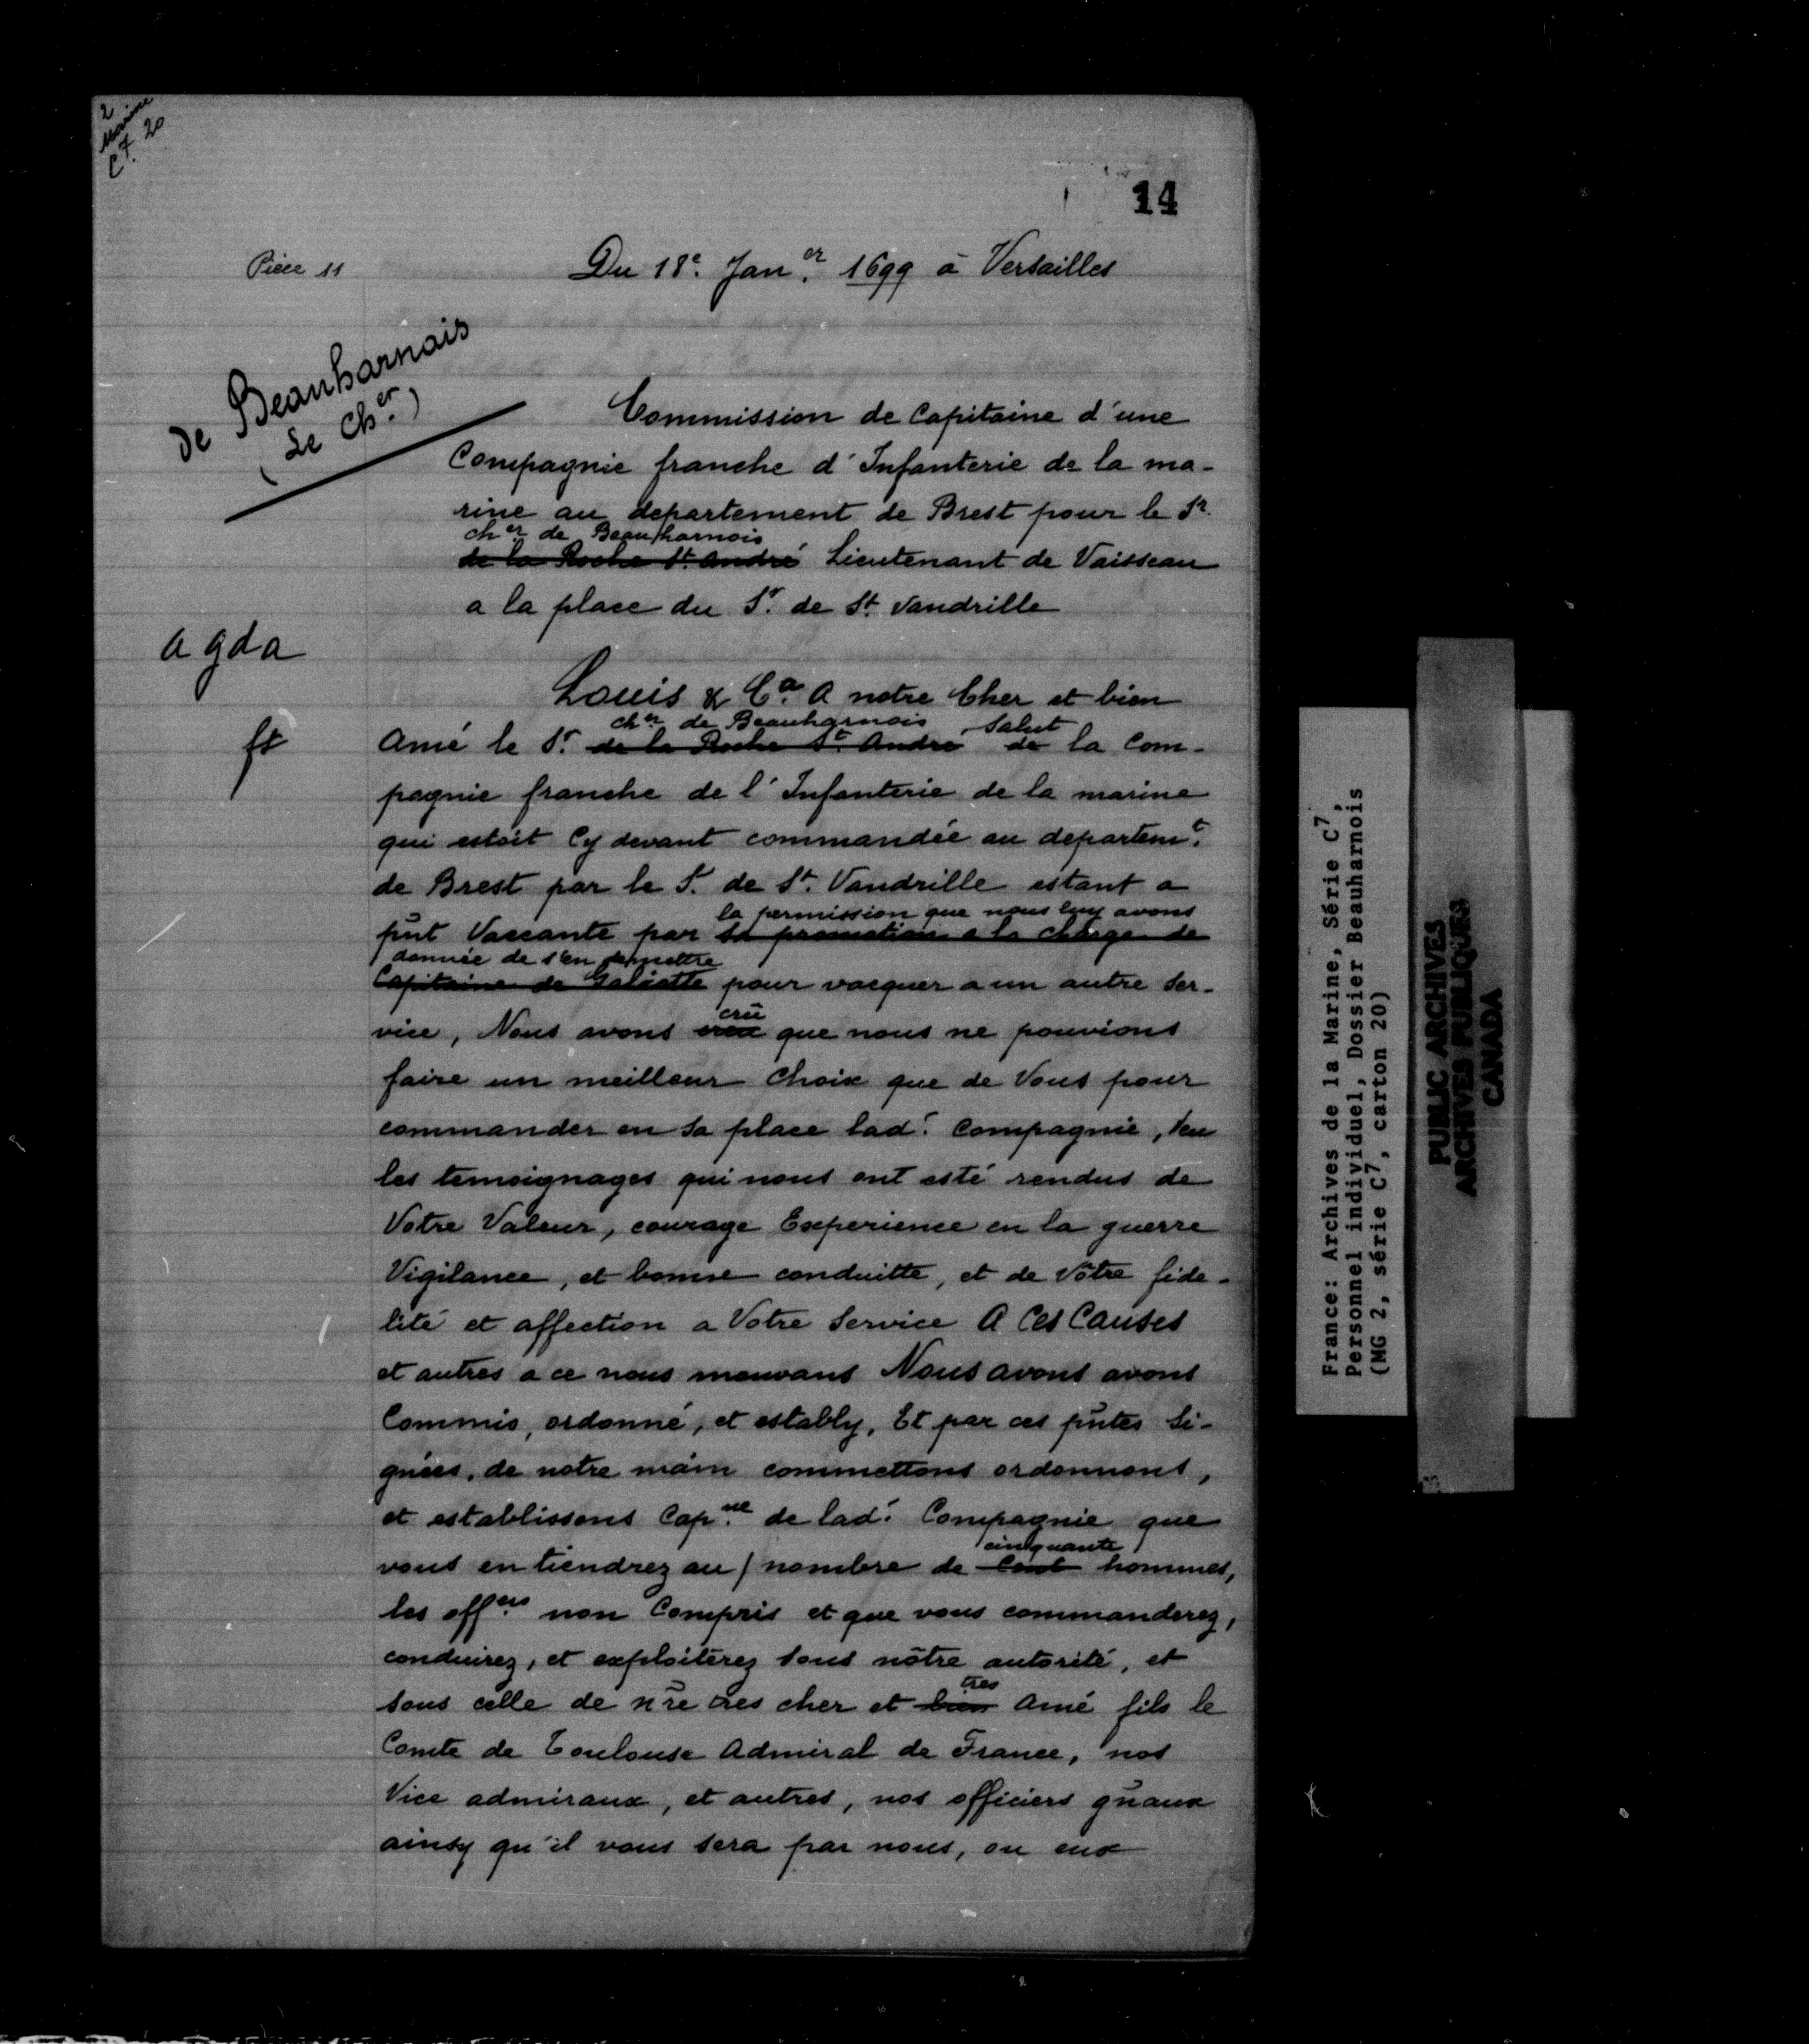 2
Marine
C7. 20
14
Piece 11
Du 18e. Jan.er 1699 à Versailles
De Beauharnais
(Le Cher.)
Commission de Capitaine d'une
Compagnie franche d'Infanterie de la ma-
rine au departement de Brest pour le Sr.
cher de Beauharnois
de la Roche St. André Lieutenant de Vaisseau
a la place du Sr. de St. Vandrille
a gda
ft
Louis & Ca. A notre Cher et bien
cher de Beauharnois Salut
Amé le Sr. de la Roche St. André de la Com-
pagnie franche de l'Infanterie de la marine
qui estoit Cy devant commandée au departemt.
de Brest par le S. de St. Vandrille estant a
la permission que nous luy avons
pñt Vaccante par sa promotion a la charge de
donnée de s'en demettre
Capitaine de Galiotte pour vacquer a un autre Ser-
crû
vice, Nous avons creu que nous ne pouvions
faire un meilleur Choix que de Vous pour
commander en sa place lad. Compagnie, Veu
les temoignages qui nous ont esté rendus de
Votre Valeur, courage Experience en la guerre
Vigilance, et bonne conduitte, et de Vôtre fide-
lité et affection a Votre Service A Ces Causes
et autres a ce nous mouvans Nous avons avons
Commis, ordonné, et estably, Et par ces pñtes Si-
gnées, de notre main commettons ordonnons,
et establissons Capne. de lad. Compagnie que
cinquante
vous entiendrez au / nombre de Cent hommes,
les offers. non Compris et que vous commanderez,
conduirez, et exploiterez sous nôtre autorité, et
tres
sous celle de nre tres cher et bien Amé fils le
Comte de Toulouse Admiral de France, nos
Vice admiraux, et autres, nos officiers gñaux
ainsy qu'il vous sera par nous, ou eux
France: Archives de la Marine, Série C7,
Personnel individuel, Dossier Beauharnois
(MG 2, série C7, carton 20)
PUBLIC ARCHIVES
ARCHIVES PUBLIQUES
CANADA